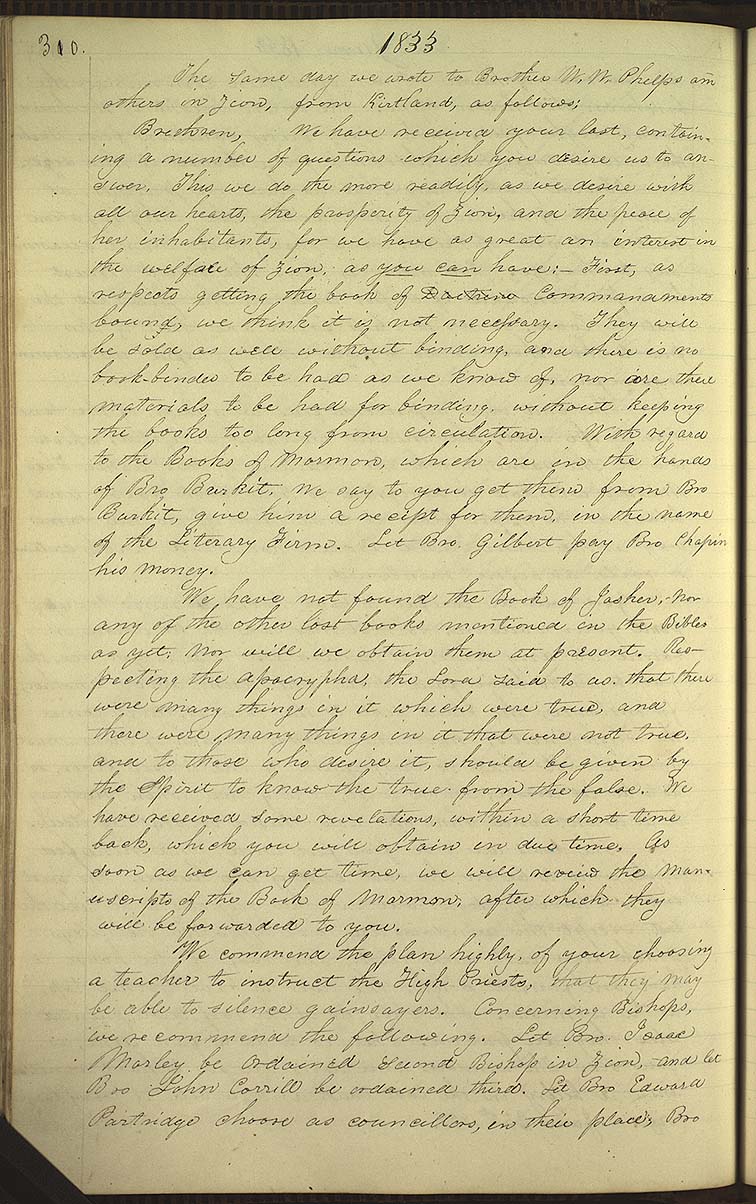 310. 1833
The same day we wrote to Brother W. W. Phelps an
others in Zion, from Kirtland, as follows;
Brethren, We have received your last, contain-
ing a number of questions which you desire us to an-
swer. This we do the more readily, as we desire with
all our hearts, the prosperity of Zion, and the peace of
her inhabitants, for we have as great an interest in
the welfare of Zion, as you can have:- First, as
respects getting the book of Doctrine Commandments
bound, we think it is not necessary. They will
be sold as well without binding, and there is no
book-binder to be had as we know of, nor are there
materials to be had for binding, without keeping
the books too long from circulation. With regard
to the Books of Mormon, which are in the hands
of Bro Burkit, we say to you get them from Bro
Burkit, give him a receipt for them, in the name
of the Literary Firm. Let Bro. Gilbert pay Bro Chapin
his money.
We have not found the Book of Jasher, nor
any of the other lost books mentioned in the Bibles
as yet; nor will we obtain them at present. Res-
pecting the apocrypha, the Lord said to us that there
were many things in it which were true, and
there were many things in it that were not true,
and to those who desire it, should be given by
the Spirit to know the true from the false. We
have received some revelations, within a short time
back, which you will obtain in due time. As
soon as we can get time, we will review the man-
uscripts of the Book of Mormon, after which they
will be forwarded to you.
We commend the plan highly, of your choosing
a teacher to instruct the High Priests, that they may
be able to silence gainsayers. Concerning Bishops,
we recommend the following. Let Bro. Isaac
Morley be ordained second Bishop in Zion, and let
Bro John Corrill be ordained third. Let Bro Edward
Partridge choose as councillors, in their place, Bro